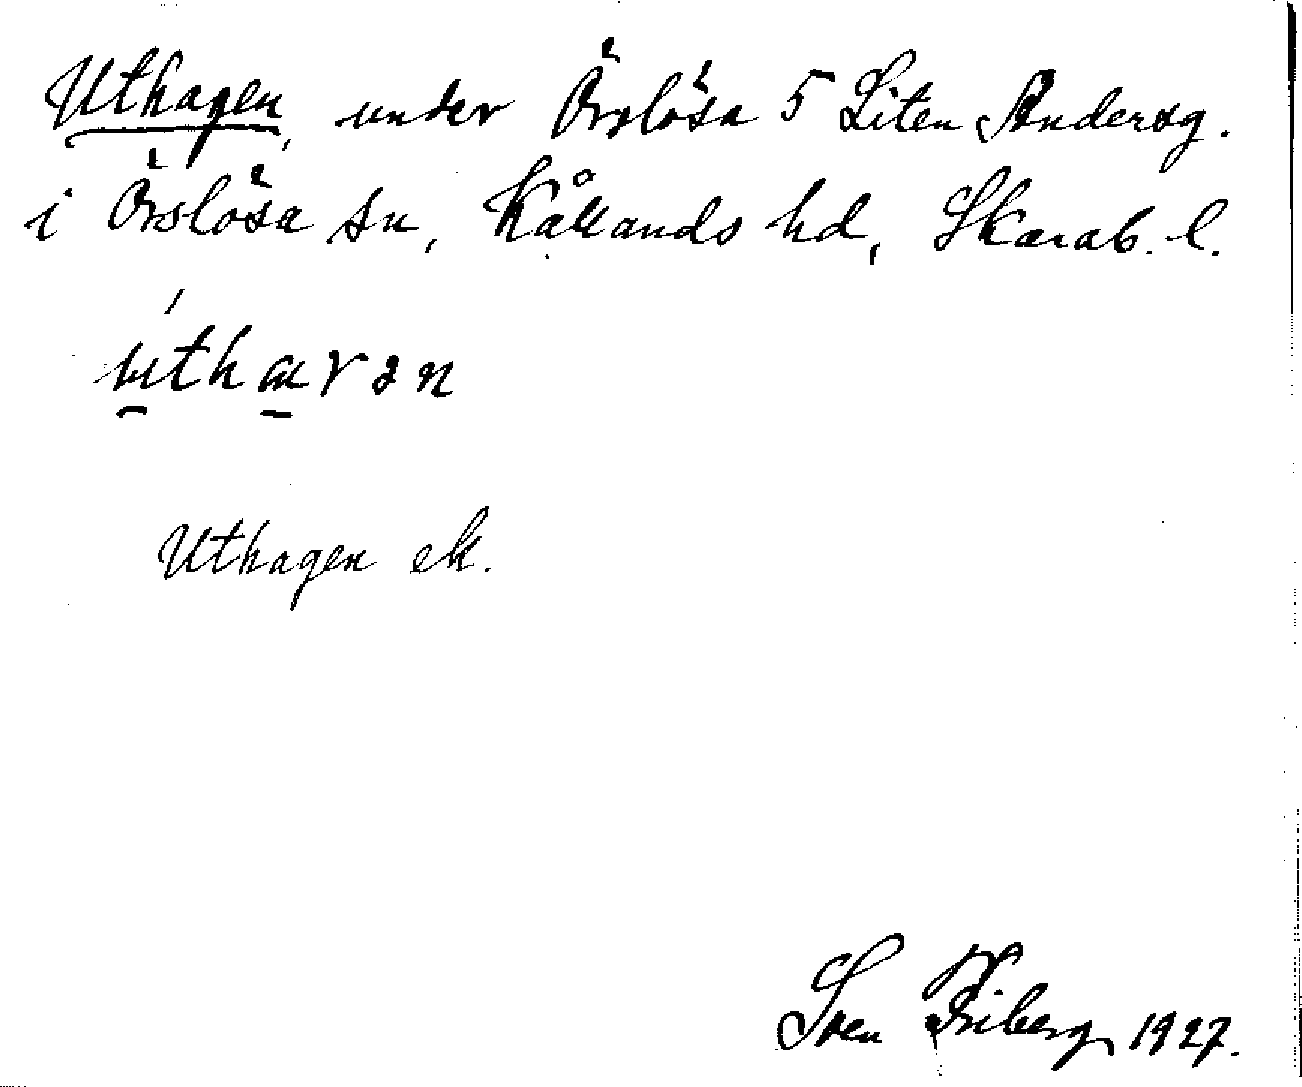 Uthagen, under Örslösa 5 Liten Andersg.
i Örslösa sn, Kållands hd, Skarab. l.
Uthagen ek.
Sven Friberg 1927.